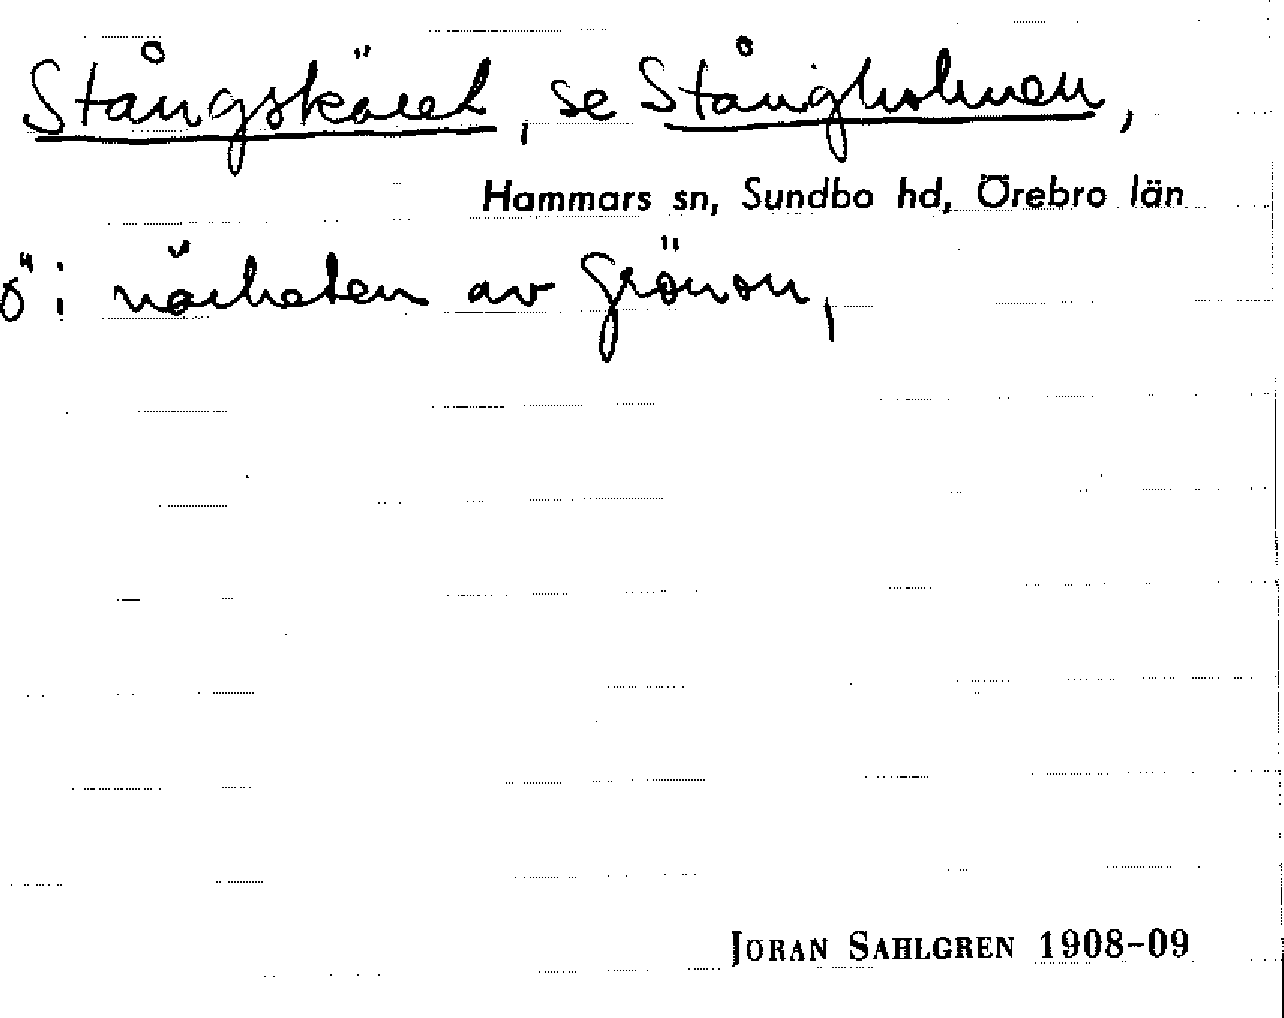 Stångskäret, se Stångholmen,
Hammars sn, Sundbo hd, Örebro län
ö i närheten av Grönön,
JÖRAN SAHLGREN 1908-09